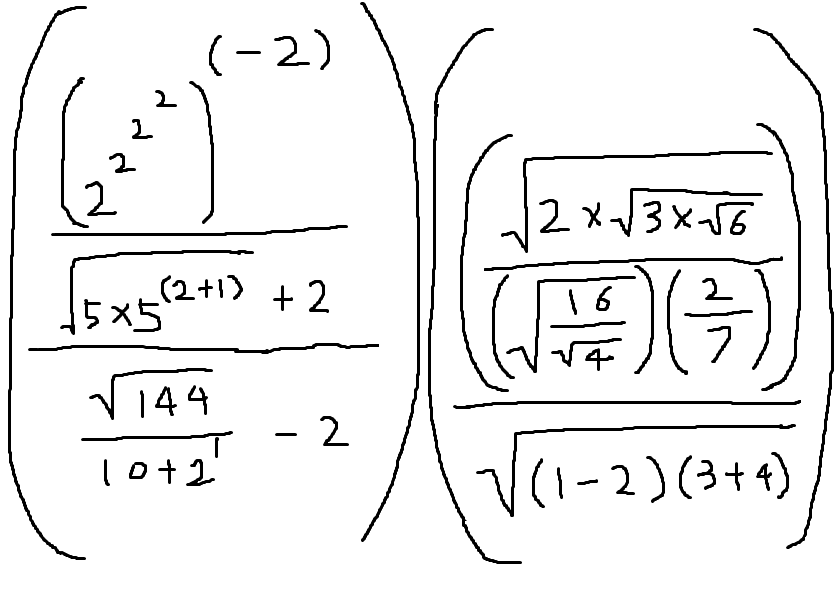 \left( \frac{\frac{\left( 2^{2^{2^{2}}} \right)^{(-2)}}{\sqrt{5 \times 5^{(2+1)}} + 2}}{\frac{\sqrt{144}}{10+2^{1}} - 2} \right) \left( \frac{\left( \frac{\sqrt{2 \times \sqrt{3 \times \sqrt{6}}}}{\left( \sqrt{\frac{16}{\sqrt{4}}} \right) \left( \frac{2}{7} \right)} \right)}{\sqrt{(1-2)(3+4)}} \right)